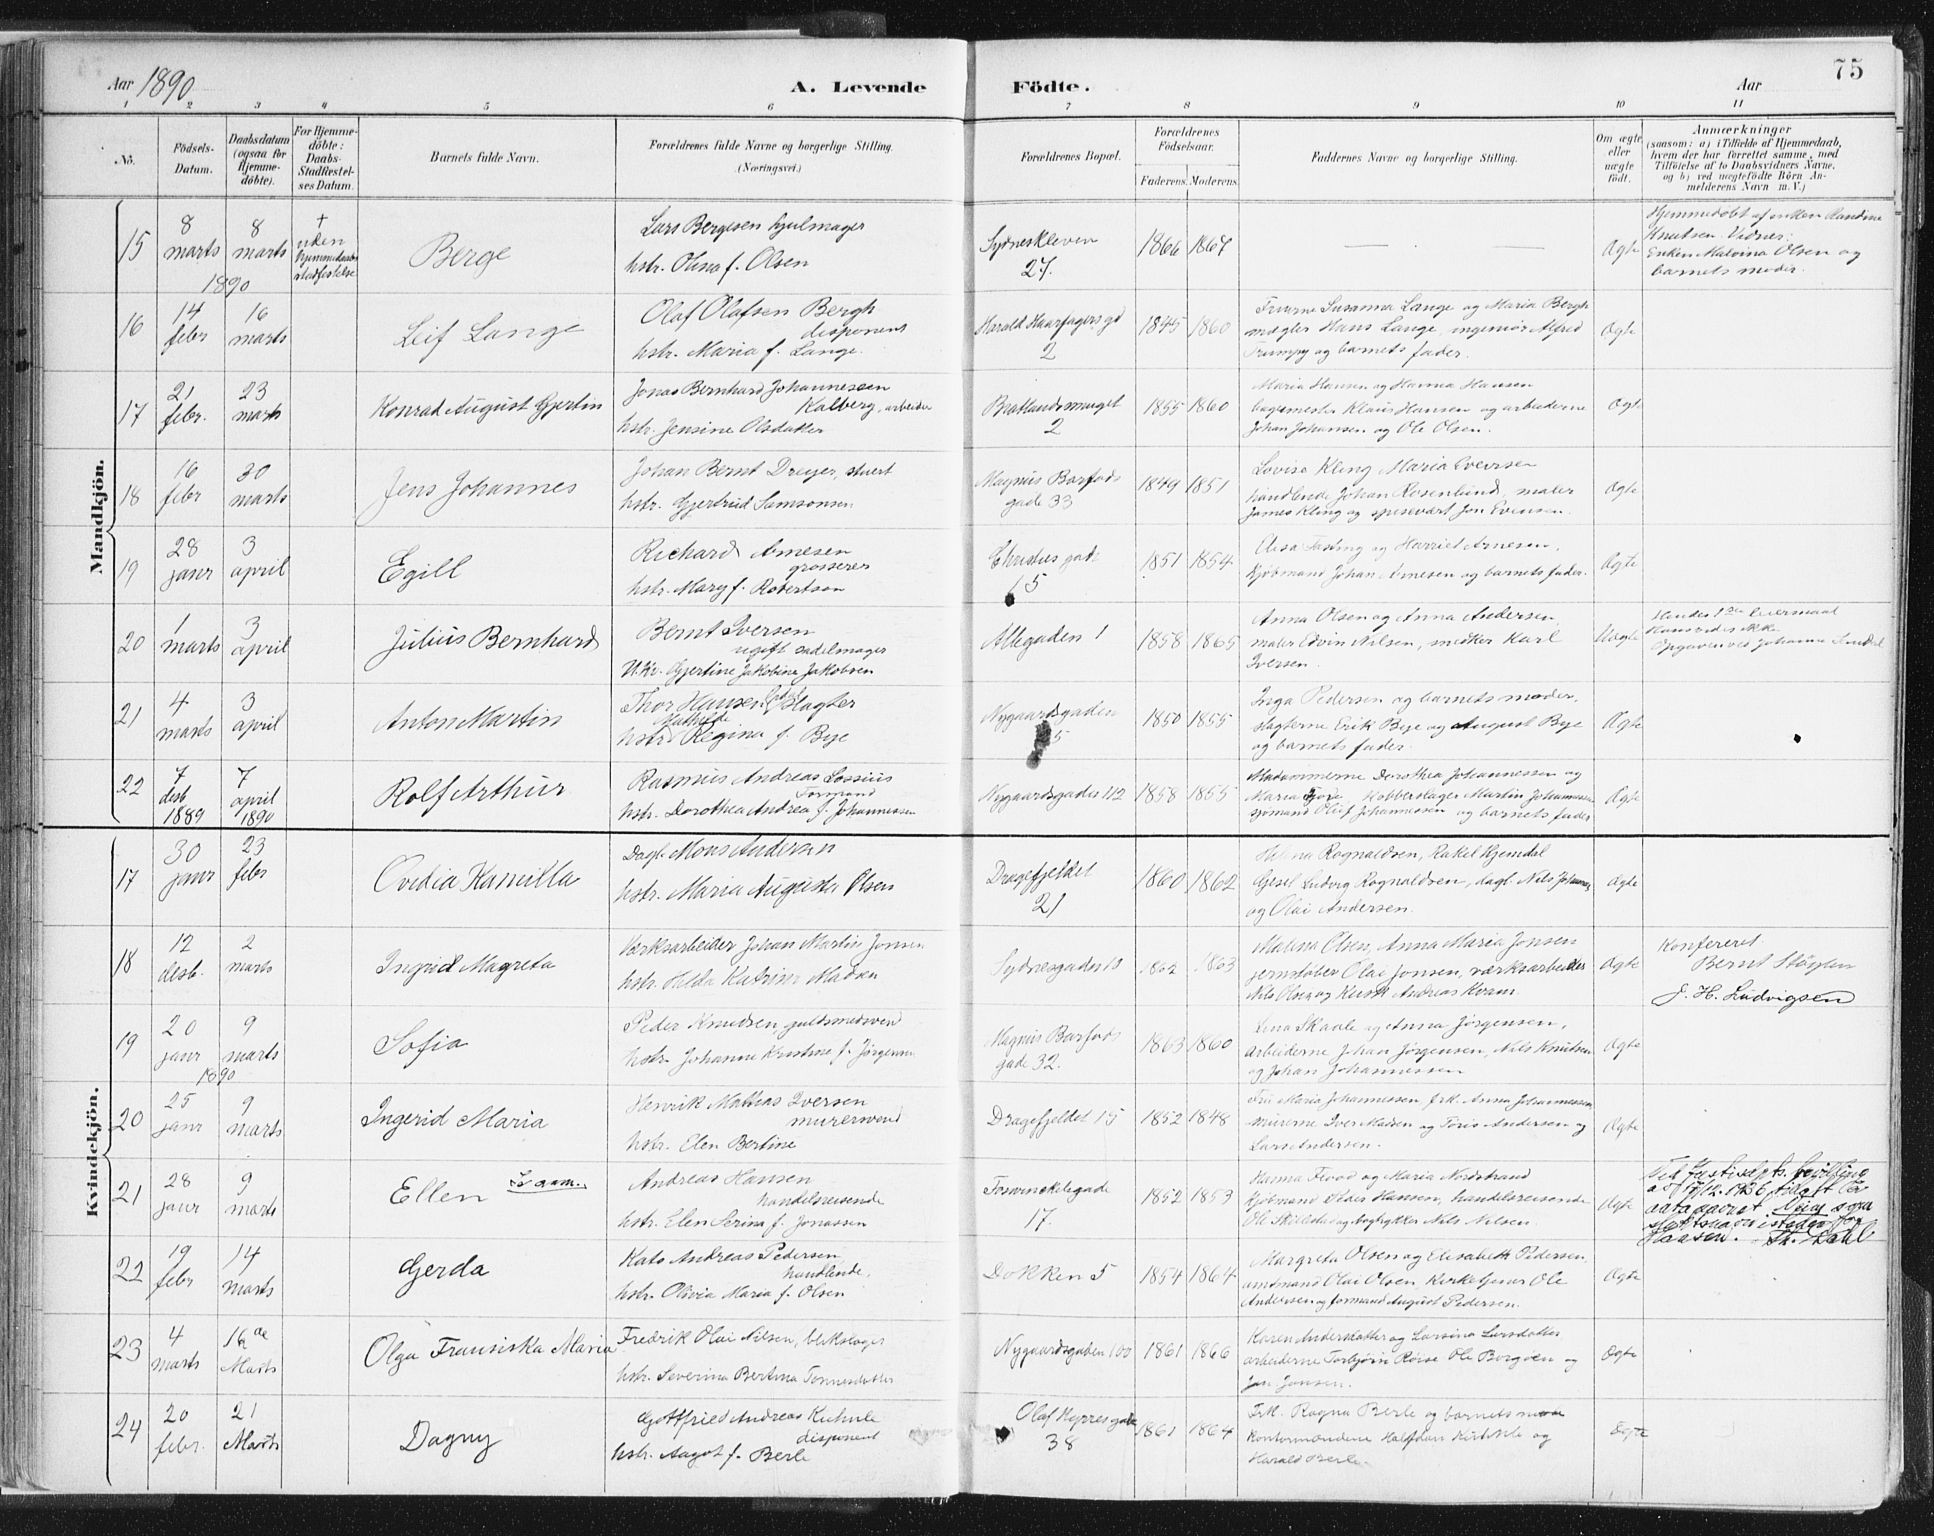 Aar 1890
A. Levende
Födte.
Aar
75
1 2 3 4 5 6 7 8 9 10 11
No.
Födsels-
Datum.
Daabsdatum
(ogsaa for
Hjemme-
döbte).
For Hjemme-
döbte:
Daabs-
Stadfæstel-
ses Datum.
Barnets fulde Navn.
Forældrenes fulde Navne og borgerlige Stilling.
(Næringsvei.)
Forældrenes Bopæl.
Forældrenes
Födselsaar.
Faderens. Moderens.
Faddernes Navne og borgerlige Stilling.
Om ægte
eller
uægte
födt.
Anmærkninger
(saasom: a) i Tilfælde af Hjemmedaab,
hvem der har forrettet samme, med
Tilföielse af to Daabsvidners Navne,
og b) ved uægtefödte Börn An-
melderens Navn m. V.)
Mandkjön.
15
8
marts
1890
8
marts
+
uden
hjemmedaabs
stadfestelse
Berge
Lars Bergesen hjulmager
hstr. Olina f. Olsen
Sydneskleven
27.
1866 1867
Ægte
Hjemmedøbt af enken Randine
Knutsen. Vidner:
Enken Malvina Olsen og
barnets moder.
16
14
febr
16
marts
Leif Lange
Olaf Olafsen Bergh
disponent
hstr. Maria f. Lange.
Harald Haarfagersgd
2
1845 1860
Fruerne Susanna Lange og Maria Bergh
mægler Hans Lange, ingeniør Alfred
Trumpy og barnets fader.
Ægte
17
21
febr.
23
marts
Konrad August Gjertin
Jonas Bernhard Johannesen
Kalberg, arbeider
hstr. Jensine Olsdatter
2
1855 1860
Maria Hansen og Hanna Hansen
bagermester Klaus Hansen og arbeiderne
Johan Johansen og Ole Olsen.
Ægte
18
16
febr
30
marts
Jens Johannes
Johan Bernt Dreyer, stuert
hstr. Gjertrud Samsonsen
Magnus Barfods
gade 33
1849 1851
Lovise Kling Maria Evensen
handlende Johan Rosenlund, maler
James Kling og spisevært Jon Evensen.
Ægte
19
28
janr
3
april
Egill
Richard Arnesen
grosserer
hstr. Mary f. Robertson
Christies gade
15
1851 1854
Fasting og Harriet Arnesen,
Kjøbmand Johan Arnesen og barnets fader.
Ægte
20
1
marts
3
april
Julius Bernhard
Bernt Iversen
ugift sadelmager
U.kv. Gjertine Jakobine Jakobsen
Allegaden 1
1858 1865
Anna Olsen og Anna Andersen,
maler Edvin Nilsen, snedker Karl
Iversen.
Uægte
Hendes 1ste leiermaal
Hans vides ikke
Opgaven ved Johanne
21
4
marts
3
april
Anton Martin
Thor Hansen slagter
Mathilde
hstr. Regina f. Bye
Nygaardsgaden
1850 1855
Inga Pedersen og barnets moder,
slagterne Erik Bye og August Bye
og barnets fader.
Ægte
22
7
desb
1889
7
april
1890
Rolf Arthur
Rasmus Andreas Lossius
Formand
hstr. Dorothea Andrea f. Johannessen
Nygaardsgaden 112
1858 1855
Madammerne Dorothea Johannessen og
Maria Kobberslager Martin Johannessen
sjømand Oluf Johannessen og barnets fader
Ægte
Kvindekjön.
17
30
janr
23
febr
Ovedia Kamilla
Dagl. Mons Andersen
hstr. Maria Augusta Olsen
Dragefjeldet
21
1860 1862
Helena Rognaldsen, Rakel Hjemdal
Gjesel Ludvig Rognaldsen, dagl. Nils Johannes
og Olai Andersen.
Ægte
18
12
desb.
2
marts
Ingrid Magreta
Verksarbeider Johan Martin Jonsen
hstr. Hilda Katrine Madsen
Sydnesgaden 13
1862 1863
Malena Olsen, Anna Maria Jonsen
jernstøber Olai Jonsen, værksarbeider
Nils Olsen og Kusk Andreas Kvam.
Ægte
Konfereret
Bernt Støylen
J. H. Ludvigsen
19
20
janr
1890
9
marts
Sofia
Peder Knudsen, guldsmedsvend
hstr. Johanne Kristine f. Jørgensen
Magnus Barfods
gade 32.
1863 1860
Lina Skaale og Anna Jørgensen,
arbeiderne Johan Jørgensen, Nils Knutsen
og Johan Johannessen
Ægte
20
25
janr
9
marts
Ingerid Maria
Henrik Mathias Iversen
murersvend
hstr. Elen Bertine
Dragefjeldet 15
1852 1848
Fru Maria Johannessen, frk. Anna Johannessen
murerne Iver Madsen og Tøris Andersen og
Lars Andersen.
Ægte
21
28
janr
9
marts
Ellen
Se anm.
Andreas Hansen
handelsreisende
hstr. Elen Serina f. Jonassen
Torvinckelegade
17.
1852 1853
Hanna Flood og Maria Nordstrand
Kjøbmand Peder Hansen, handelsreisende
Ole Skilstad og bogtrykker Nils Nilsen.
Ægte
Ved Justisdpts. bevilling
av 17/12. 1936
som
slektsnavn istedenfor
Hansen. Th. Dahl
22
19
febr
14
marts
Gerda
Kato Andreas Pedersen
handlende,
hstr. Olivia Maria f. Olsen
Dokken 5
1854 1864
Margreta Olsen og Elisabeth Pedersen,
amtmand Olai Olsen, Kirketjener Ole
Andersen og formand August Pedersen.
Ægte
23
4
marts
16de
Marts
Olga Fransiska Maria
Fredrik Olai Nilsen, blikslager
hstr. Severina Bertina Tonnesdatter
Nygaardsgaden 100
1861 1866
Karen Andersdatter og Larsina Larsdatter
arbeiderne Torbjørn Røise Ole Borgøen og
Jon Jonsen.
Ægte
24
20
febr.
21
Marts
Dagny
Gottfried Andreas Kuhnle
disponent
hstr. Aagot f. Berle
Olaf Kyrres gade
38
1861 1864
Frk. Ragna Berle og barnets moder
Kontormændene Halfdan Kuhnle og
Harald Berle.
Ægte